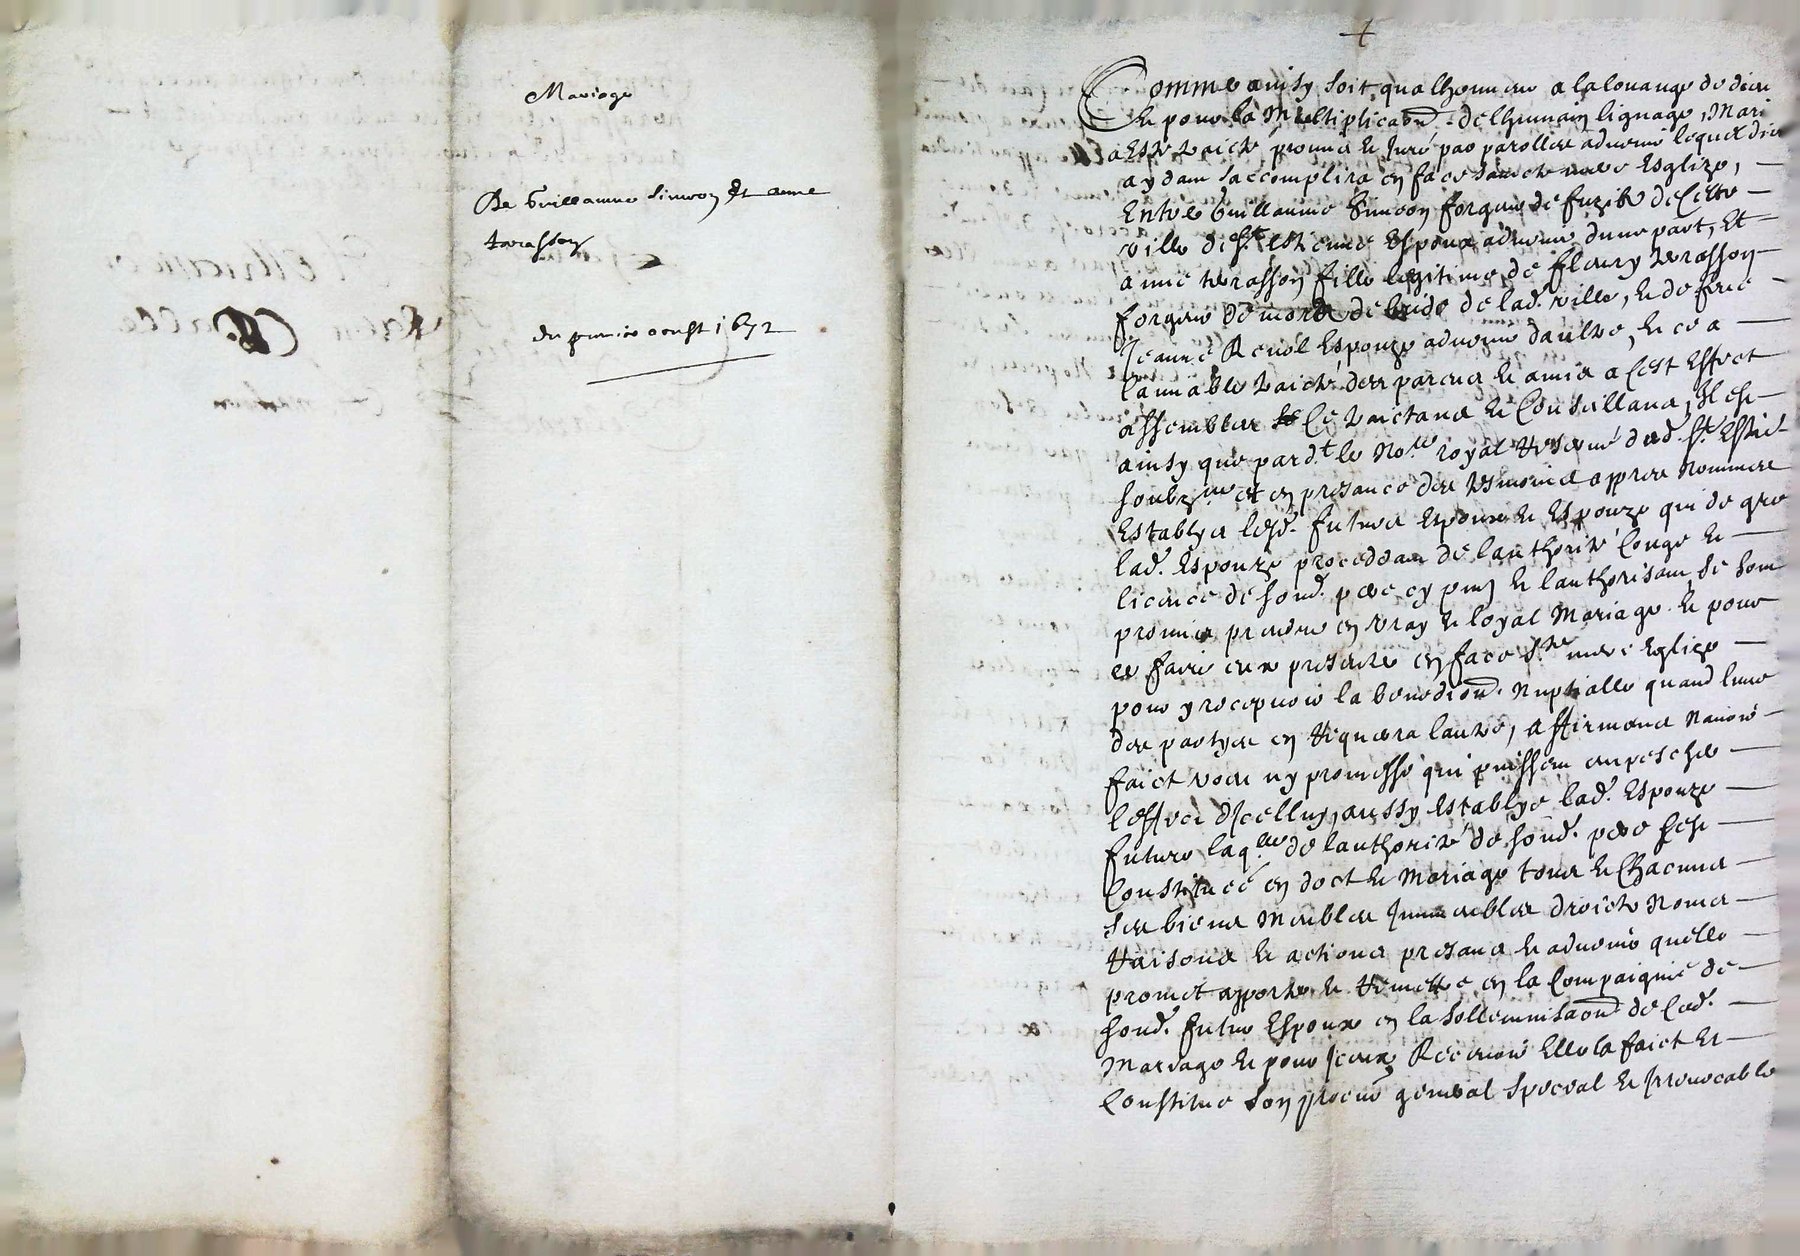 Mariage
De Guillaume Simeon Et anne
tarasson
du premier aoust 1672
Comme ainsy soit qua lhonneur a la louange de dieu
Et pour la Multiplicaon de lhumain lignage, Mari
a Este traicte promis et Jure par parolles advenir lequel dieu
aydant saccomplira en face saincte mere Esglize,
Entre Guillaume Simeon forgeur de fuzils de Ceste
ville de St estienne Espoux advenir dune part, Et
anne terasson fille legitime de fleury terasson
forgeur de mors de bride de lad. ville, et de feue
Jeanne Revol Espouze advenir daultre, Et ce a
lamiable traicte des parens et amis a Cest Effect
assembles Ce traictans et Conseillans, Il est
ainsy que pardt. le Nore. royal reserve dud. St. Estie
soubzne et en presance des tesmoins appres Nommes
Establys lesd. futurs Espoux et Espouze qui de gre
lad. Espouze proceddant de lauthorite Conge et
licence de sond. pere cy pnt et lauthorisant, se sont
promis prendre en vray et loyal Mariage. Et pour
ce faire eux presenter en face Ste mere Eglize
pour y recepvoir la benediòn. Nuptialle quand lune
des partyes en requera lautre, affirmans Navoir
faict voeu ny promesse qui puissent empescher
leffect dIcelluy, aussy Establye lad. Espouze
future laqlle de lauthorite de sond. pere sest
Constituee en doct et Mariage tous et Chacuns
ses biens Meubles Immeubles droicts Noms
raisons et actions presans et advenir quelle
promet apporter et remettre en la Compaignie de
sond. futur Espoux en la sollemnisaon de Ced.
Mariage et pour Iceux Recevoir Elle la faict Et
Constitue son procur general special et Irrevocable